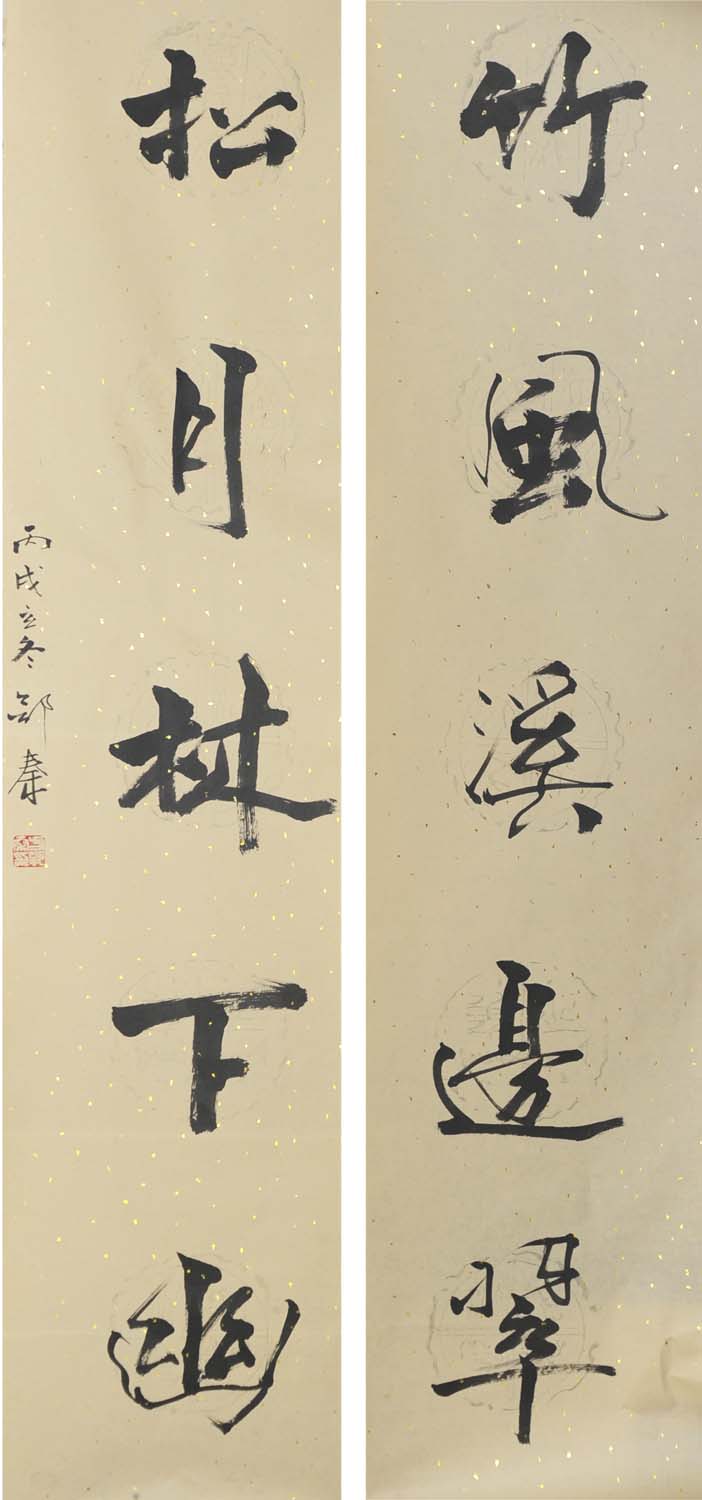 竹風溪邊翠
松月林下幽
丙戌立冬 郘秦